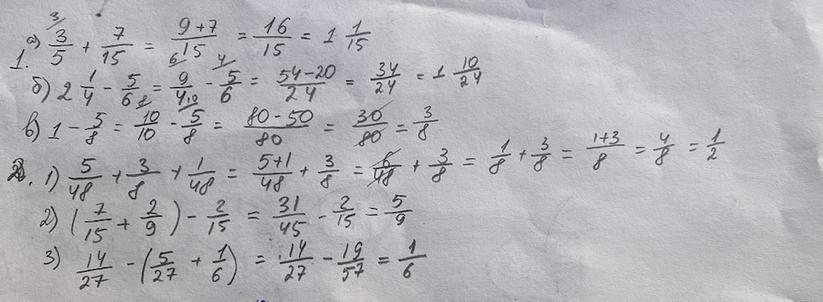 1. а) 3/5 + 7/15 = (9+7)/15 = 16/15 = 1 1/15
б) 2 1/4 - 5/6 = 9/4 - 5/6 = (54-20)/24 = 34/24 = 1 10/24
в) 1 - 5/8 = 10/10 - 5/8 = (80-50)/80 = 30/80 = 3/8
2. 1) 5/48 + 3/8 + 1/48 = (5+1)/48 + 3/8 = 6/48 + 3/8 = 1/8 + 3/8 = (1+3)/8 = 4/8 = 1/2
2) (7/15 + 2/9) - 2/15 = 31/45 - 2/15 = 5/9
3) 14/27 - (5/27 + 1/6) = 14/27 - 19/57 = 1/6